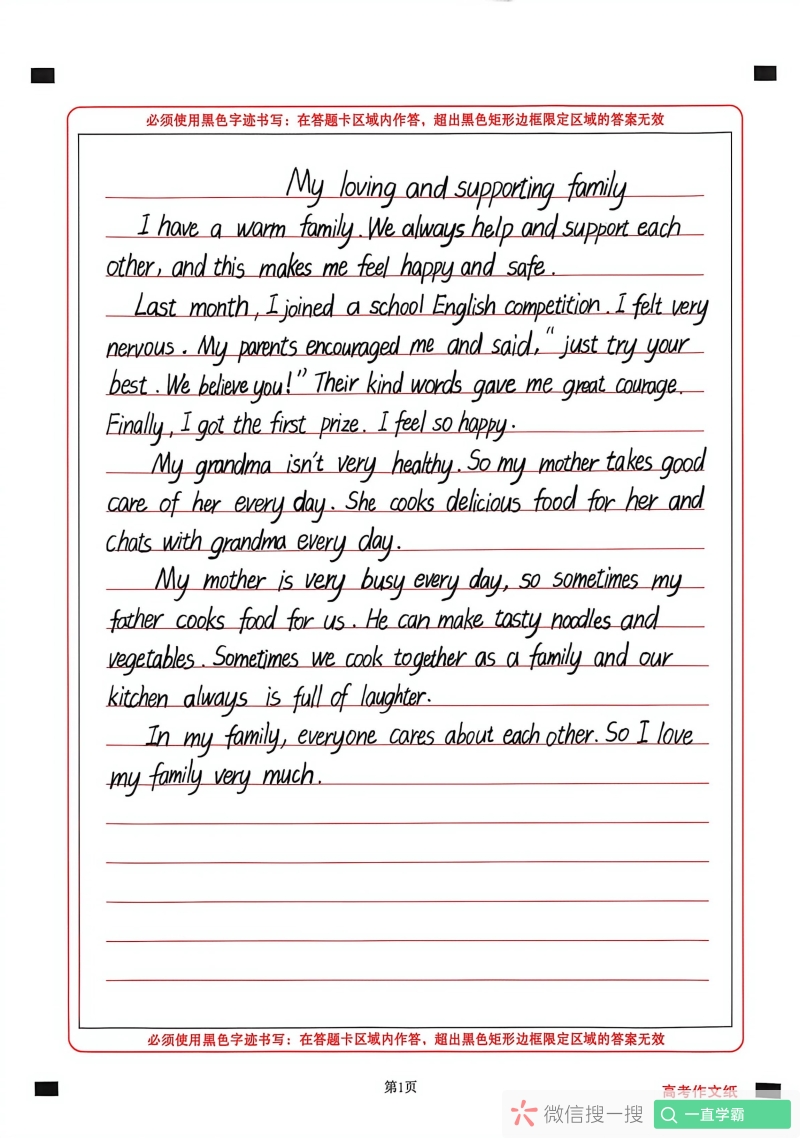 必须使用黑色字迹书写：在答题卡区域内作答，超出黑色矩形边框限定区域的答案无效
My loving and supporting family
I have a warm family. We always help and support each
other, and this makes me feel happy and safe.
Last month, I joined a school English competition. I felt very
nervous. My parents encouraged me and said, "just try your
best. We believe you!" Their kind words gave me great courage.
Finally, I got the first prize. I feel so happy.
My grandma isn't very healthy. So my mother takes good
care of her every day. She cooks delicious food for her and
chats with grandma every day.
My mother is very busy every day, so sometimes my
father cooks food for us. He can make tasty noodles and
vegetables. Sometimes we cook together as a family and our
kitchen always is full of laughter.
In my family, everyone cares about each other. So I love
my family very much.
必须使用黑色字迹书写：在答题卡区域内作答，超出黑色矩形边框限定区域的答案无效
第1页
高考作文纸
微信搜一搜
一直学霸